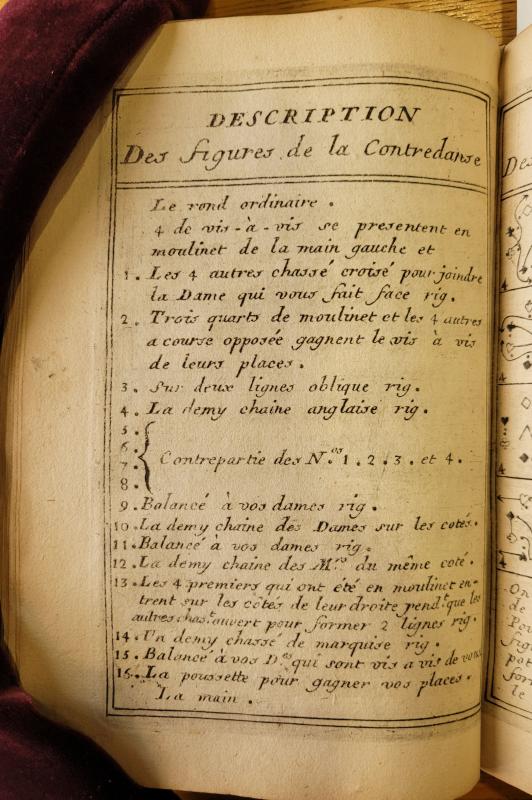 DESCRIPTION
Des figures de la Contredanse
Le rond ordinaire.
4 de vis-à-vis se presentent en
moulinet de la main gauche et
1. Les 4 autres chassé croisé pour joindre
la Dame qui vous fait face rig.
2. Trois quarts de moulinet et les 4 autres
a course opposée gagnent le vis à vis
de leurs places.
3. Sur deux lignes oblique rig.
4. La demy chaine anglaise rig.
5.
6.
7.
8.
Contrepartie des N.os 1. 2. 3. et 4.
9. Balancé à vos dames rig.
10. La demy chaine des Dames sur les cotés.
11. Balancé à vos dames rig.
12. La demy chaine des M.rs du même coté.
13. Les 4 premiers qui ont été en moulinet en-
trent sur les côtés de leur droite pend.t que les
autres chas.t ouvert pour former 2 lignes rig.
14. Un demy chassé de marquise rig.
15. Balancé à vos D.es qui sont vis a vis de vous
16. La poussette pour gagner vos places.
La main.
De
4
4
4
On
de
Po
fig
pot
for
le